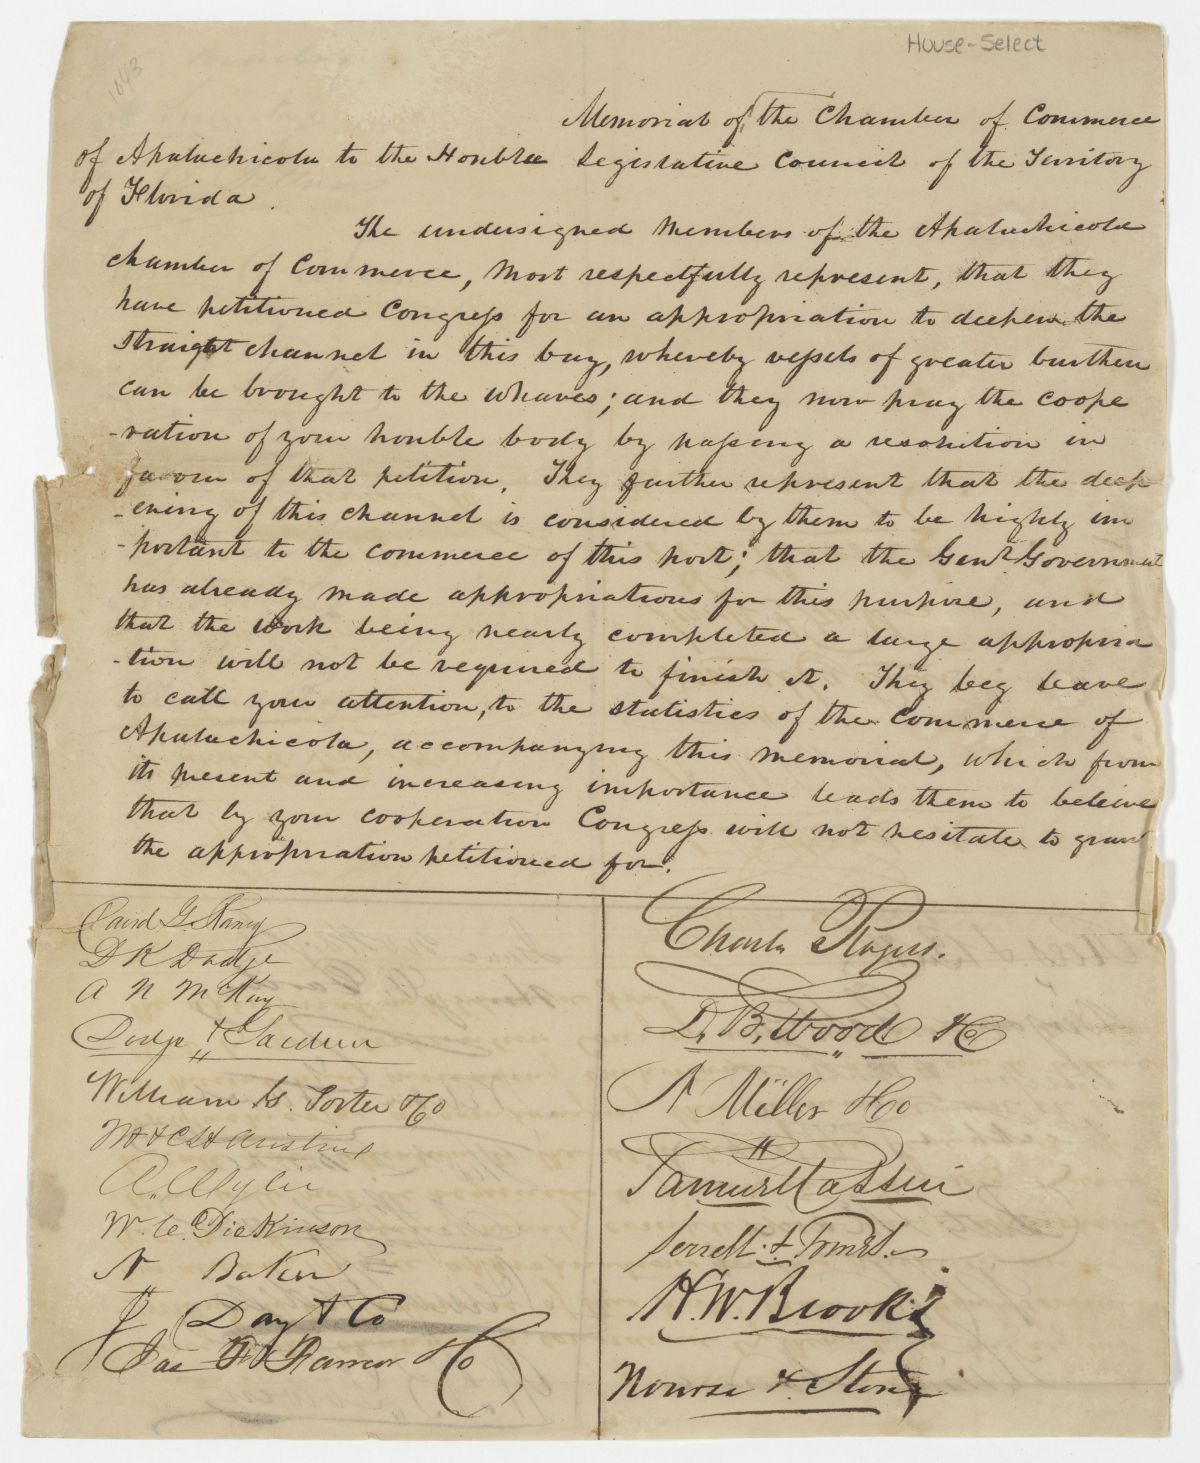 House-Select
1843
Memorial of the Chamber of Commerce
of Apalachicola to the Honble Legislative Council of the Territory
of Florida.
The undersigned Members of the Apalachicola
Chamber of Commerce, Most respectfully represent, that they
have petitioned Congress for an appropriation to deepen the
straight channel in this bay, whereby vessels of greater burthen
can be brought to the wharves; and they now pray the coope
-ration of your honble body by passing a resolution in
favour of that petition. They further represent that the deep
-ening of this channel is considered by them to be highly im
-portant to the commerce of this port; that the Genl Government
has already made appropriations for this purpose, and
that the work being nearly completed a large appropria
-tion will not be required to finish it. They beg leave
to call your attention, to the statistics of the Commerce of
Apalachicola, accompanying this memorial, which from
its present and increasing importance leads them to believe
that by your cooperation Congress will not hesitate to grant
the appropriation petitioned for.
David G. Raney
D K Dodge
A N McKay
Dodge & Gardner
William G. Porter & Co
H & C H Austin
A. Wylie
W. C. Dickinson
N Baker
J Day & Co
Jas F Farrior & Co
Charles Rogers.
D. B. Wood & Co
N Miller & Co
Samuel Cassin
Serrell &
H. W. Brooks
Nourse & Stone